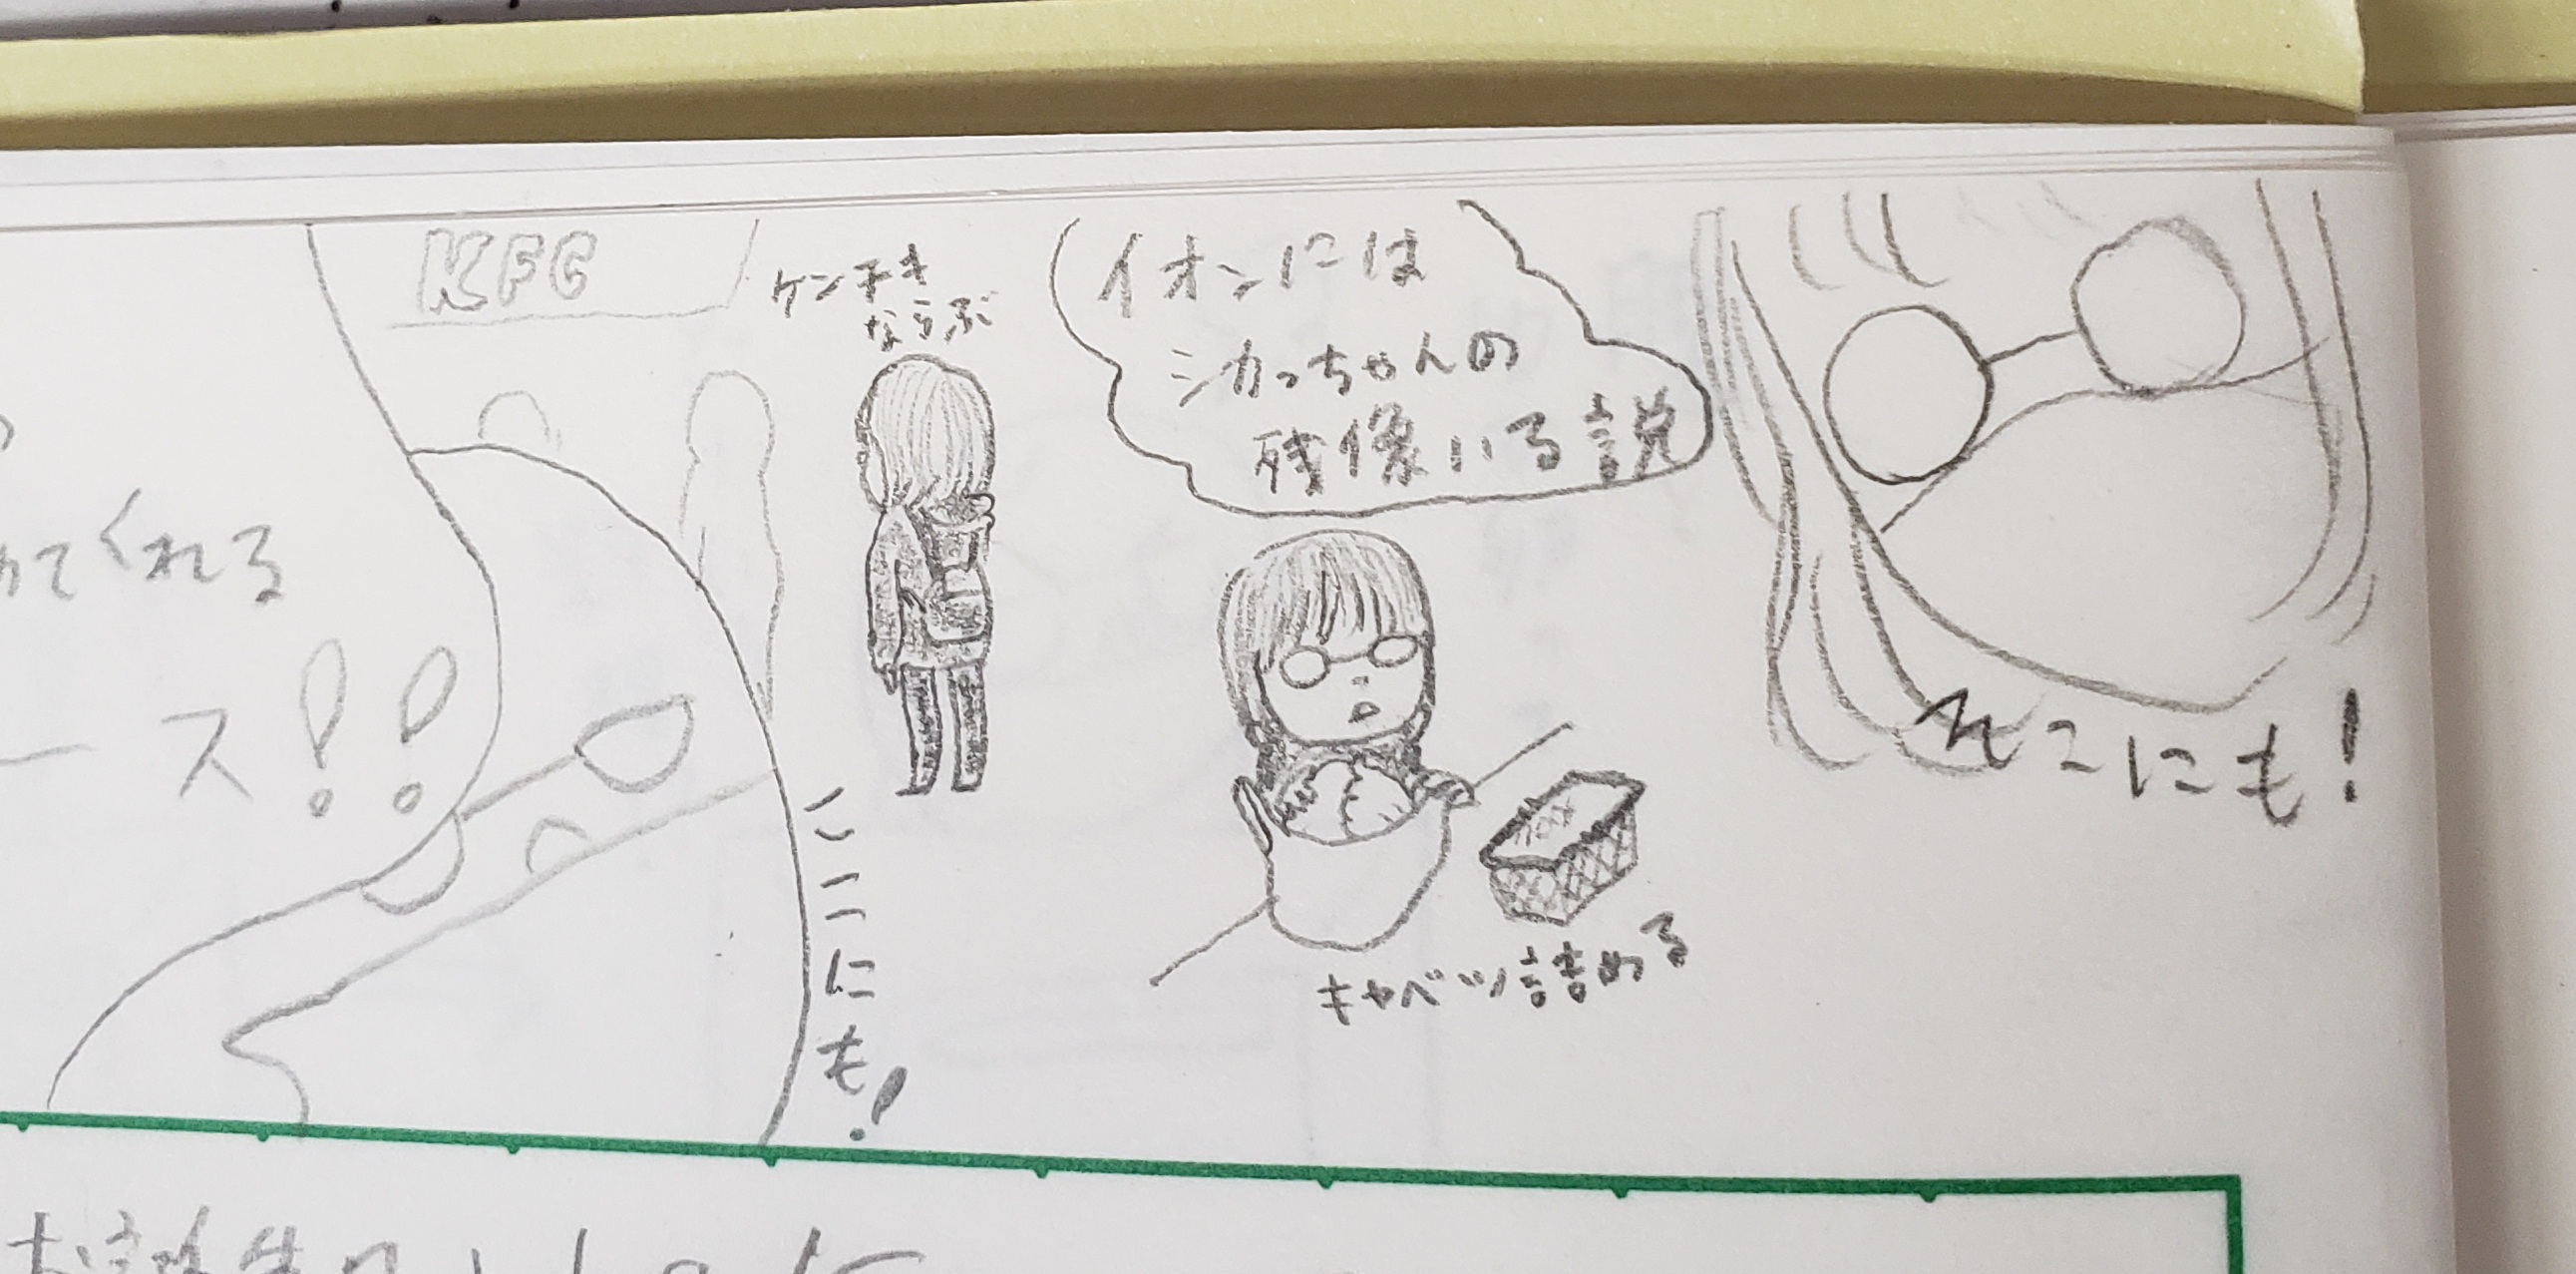 KFC
ケンチキ
ならぶ
イオンには
シカっちゃんの
残像いる説
そこにも!
めてくれる
ース!!
ここにも!
キャベツ詰める